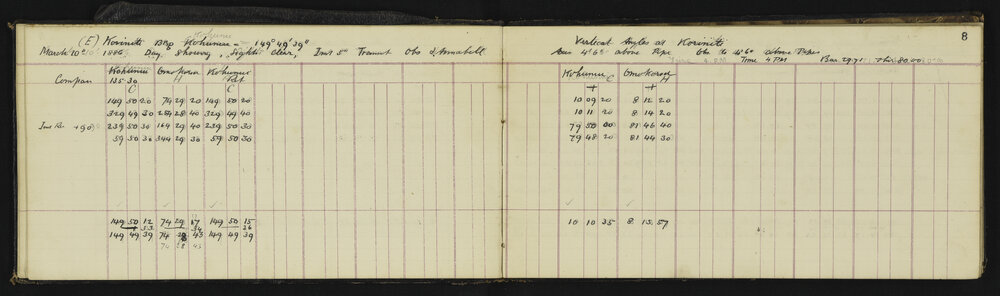 Kohumu
(E) Koriniti Brg Kohumui = 149° 49' 39"
March 10th 1886 Day, Showery, Light, Clear, Inst 5in Transit Obs
Kohumui Omokoroa Kohumui
Compan 135 30 H Ref
C C
149 50 20 74 29 20 149 50 20
329 49 30 254 28 40 329 49 40
Inst Re +90 239 50 30 164 29 40 239 50 30
59 50 30 344 29 30 59 50 30
149 50 12 74 29 17 149 50 15
33 34 36
149 49 39 74 28 43 149 49 39
74 28 43
8
Vertical Angles at Koriniti
Gun 4.65 above Pipe Obs to 4.60 above Pipe
Time 4 PM Bar. 29.71 Ther 80.00
Kohumui C Omokoroa H
+ +
10 09 20 8 12 20
10 11 20 8 14 20
79 50 00 81 46 40
79 48 20 81 44 30
10 10 35 8 13 57